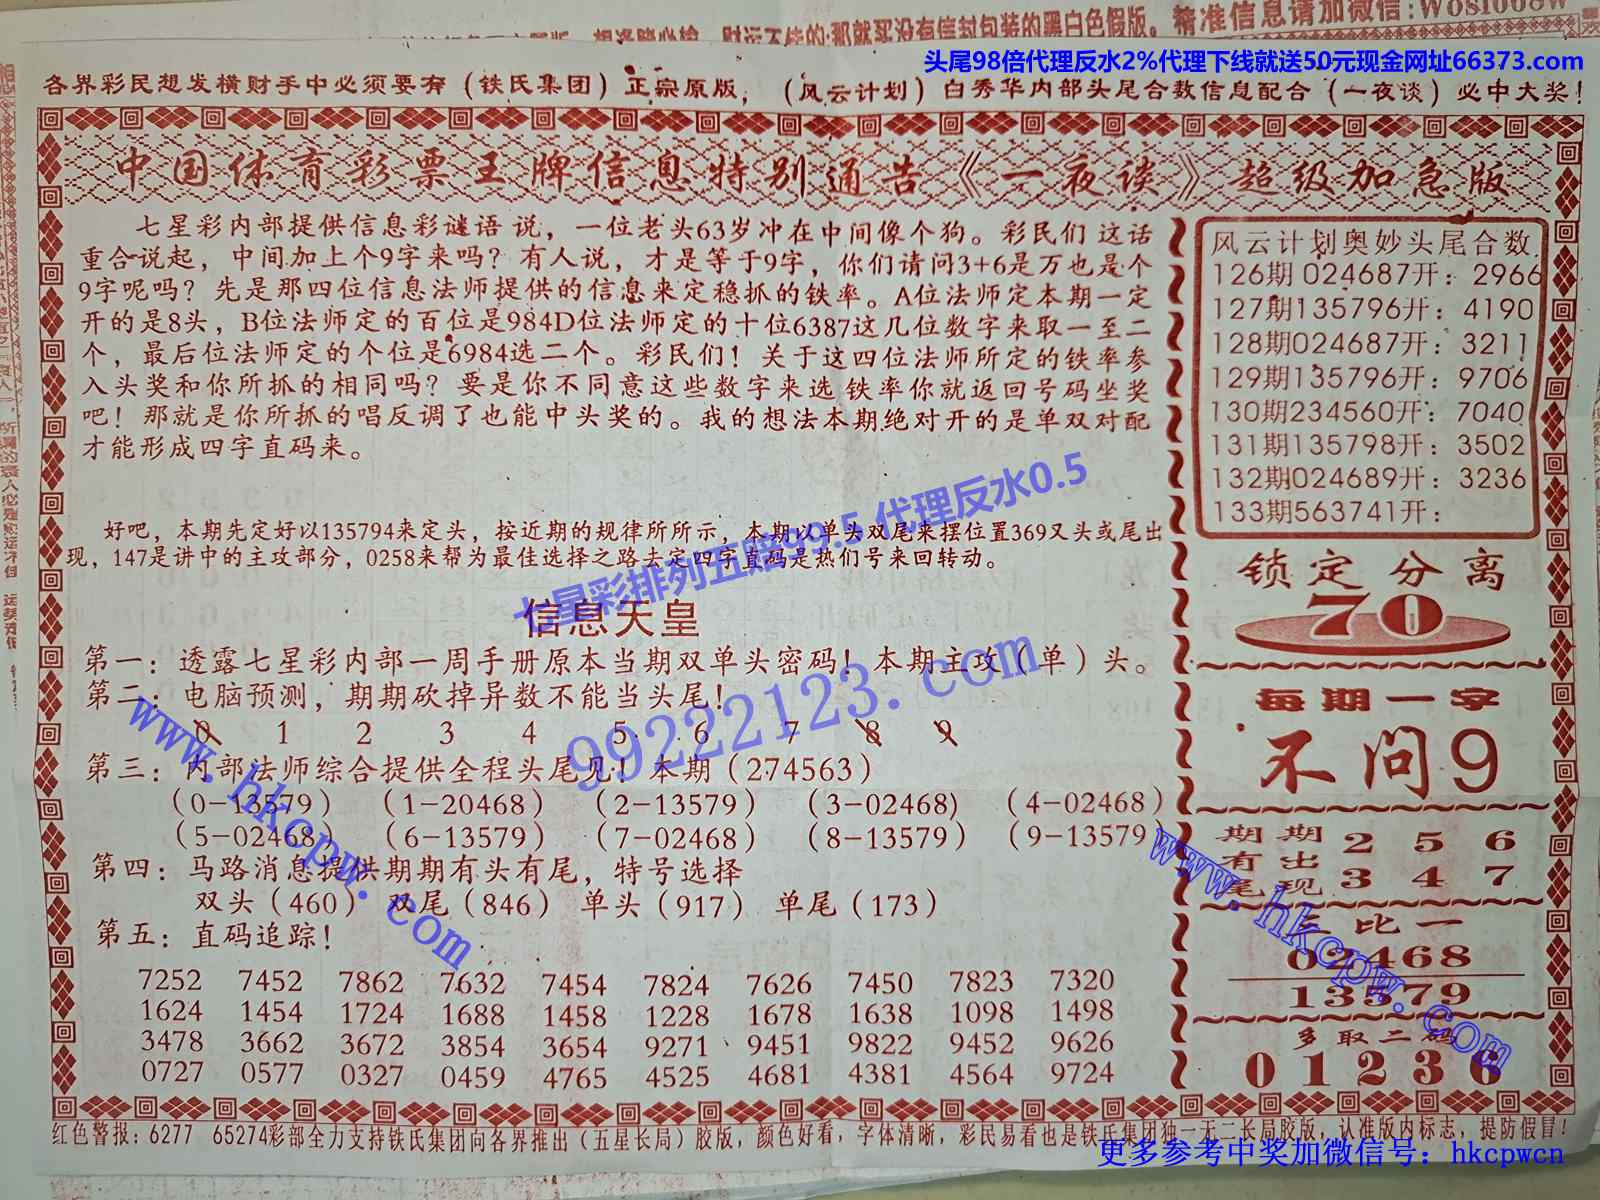 精准信息请加微信:W081008W
财运不佳的:那就买没有信封包装的黑白色假版。
头尾98倍代理反水2%代理下线就送50元现金网址66373.com
各界彩民想发横财手中必须要有（铁氏集团）正宗原版，（风云计划）白秀华内部头尾合数信息配合（一夜谈）必中大奖!
中国体育彩票王牌信息特别通告《一夜谈》超级加急版
七星彩内部提供信息彩谜语说，一位老头63岁冲在中间像个狗。彩民们这话
重合说起，中间加上个9字来吗？有人说，才是等于9字，你们请问3+6是万也是个
9字呢吗？先是那四位信息法师提供的信息来定稳抓的铁率。A位法师定本期一定
开的是8头，B位法师定的百位是984D位法师定的十位6387这几位数字来取一至二
个，最后位法师定的个位是6984选二个。彩民们！关于这四位法师所定的铁率参
入头奖和你所抓的相同吗？要是你不同意这些数字来选铁率你就返回号码坐奖
吧！那就是你所抓的唱反调了也能中头奖的。我的想法本期绝对开的是单双对配
才能形成四字直码来。
好吧，本期先定好以135794来定头，按近期的规律所所示，本期以单头双尾来摆位置369又头或尾出
现，147是讲中的主攻部分，0258来帮为最佳选择之路去定四字直码是热们号来回转动。
七星彩排列五赔99.5 代理反水0.5
信息天皇
第一：透露七星彩内部一周手册原本当期双单头密码！本期主攻（单）头。
第二：电脑预测，期期砍掉异数不能当头尾！
0 1 2 3 4 5 6 7 8 9
99222123.com
第三：内部法师综合提供全程头尾见！本期（274563）
（0-13579） （1-20468） （2-13579） （3-02468) （4-02468）
（5-02468） （6-13579） （7-02468） （8-13579） （9-13579）
第四：马路消息提供期期有头有尾，特号选择
双头（460） 双尾（846） 单头（917） 单尾（173）
第五：直码追踪！
7252 7452 7862 7632 7454 7824 7626 7450 7823 7320
1624 1454 1724 1688 1458 1228 1678 1638 1098 1498
3478 3662 3672 3854 3654 9271 9451 9822 9452 9626
0727 0577 0327 0459 4765 4525 4681 4381 4564 9724
www.hkcpw.com
风云计划奥妙头尾合数
126期024687开：2966
127期135796开：4190
128期024687开：3211
129期135796开：9706
130期234560开：7040
131期135798开：3502
132期024689开：3236
133期563741开：
锁定分离
70
每期一字
不问9
期期 2 5 6
有出
尾现 3 4 7
三比一
02468
13579
多取二码
0 1 2 3 6
www.hkcpw.com
红色警报：6277 65274彩部全力支持铁氏集团向各界推出（五星长局）胶版，颜色好看，字体清晰，彩民易看也是铁氏集团独一无二长局胶版，认准版内标志，提防假冒！
更多参考中奖加微信号：hkcpwcn